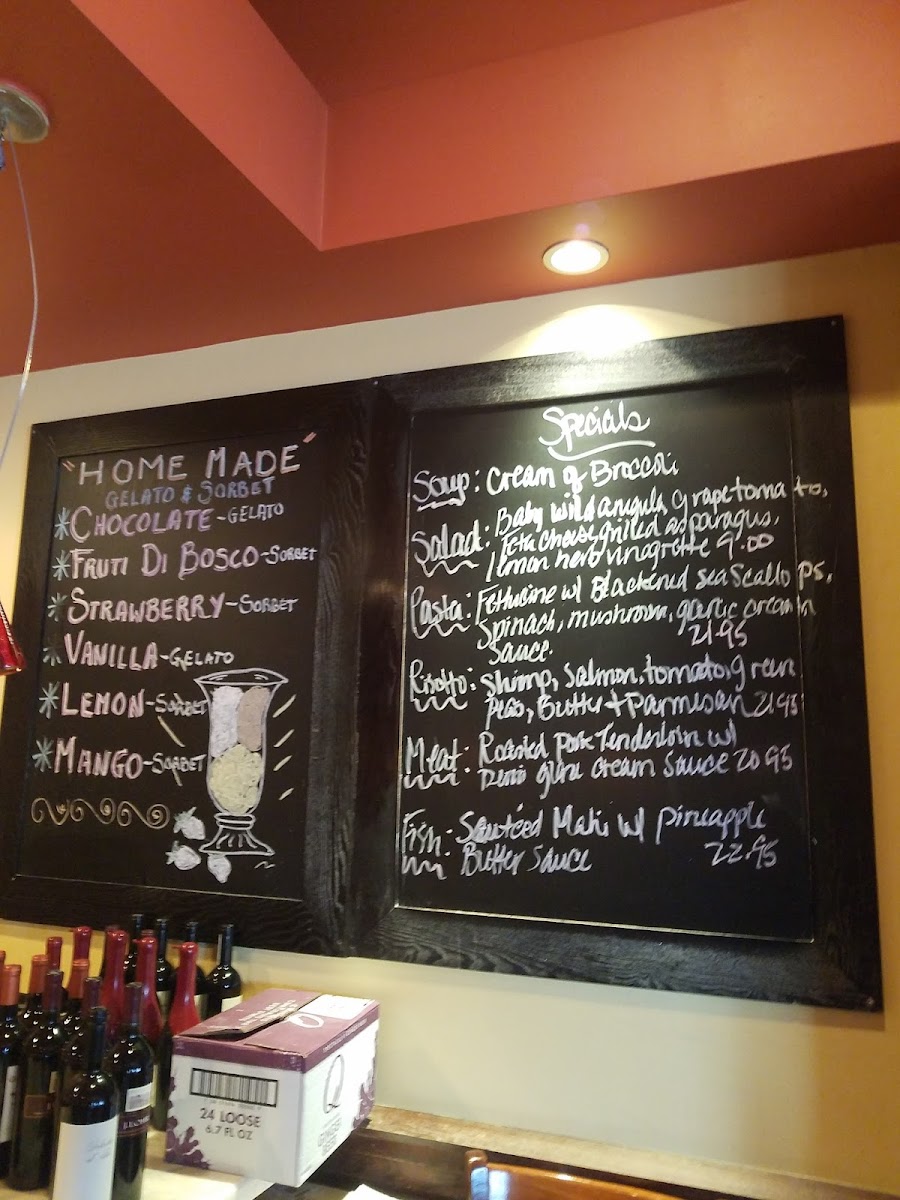 "HOME MADE"
GELATO & SORBET
*CHOCOLATE-GELATO
*FRUTI DI BOSCO-SORBET
*STRAWBERRY-SORBET
*VANILLA-GELATO
*LEMON-SORBET
*MANGO-SORBET
Specials
Soup: Cream of Broccoli
Salad: Baby wild arugula, grape tomato,
Feta cheese, grilled asparagus,
lemon herb vinagrette 9.00
Pasta: Fettucine w/ Blackened sea Scallops,
Spinach, mushroom, garlic cream
Sauce. 21.95
Risotto: Shrimp, Salmon, tomato, green
peas, Butter + Parmesan 21.95
Meat: Roasted Pork Tenderloin w/
Demi glaze cream sauce 20.95
Fish: Sautéed Mahi w/ pineapple
Butter Sauce 22.95
24 LOOSE
6.7 FL OZ
GINGER
BEER